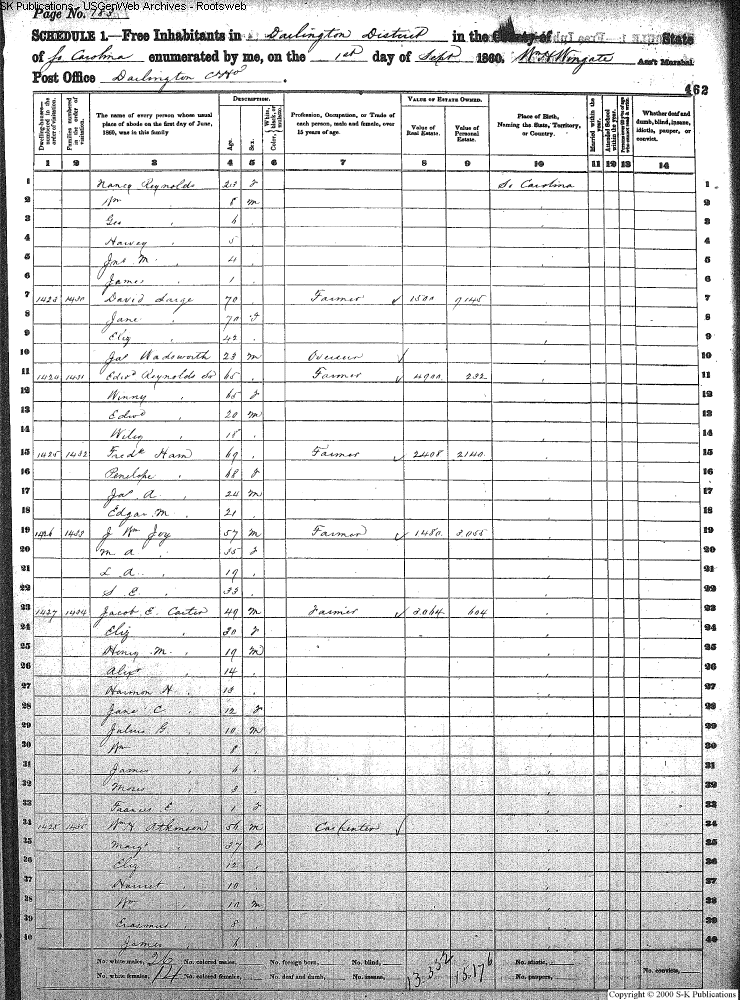 SK Publications - USGenWeb Archives - Rootsweb
Page No. 183
SCHEDULE 1.—Free Inhabitants in Darlington District in the County of State
of So Carolina enumerated by me, on the 1st day of Sept 1860. Wm H Wingate Ass't Marshal.
Post Office Darlington CHo.
462
Dwelling-houses—numbered in the order of visitation.
Families numbered in the order of visitation.
The name of every person whose usual place of abode on the first day of June, 1860, was in this family
DESCRIPTION.
Age.
Sex.
Color,
Profession, Occupation, or Trade of each person, male and female, over 15 years of age.
VALUE OF ESTATE OWNED.
Value of Real Estate.
Value of Personal Estate.
Place of Birth, Naming the State, Territory, or Country.
Married within the year.
Attended School within the year.
Whether deaf and dumb, blind, insane, idiotic, pauper, or convict.
1 2 3 4 5 6 7 8 9 10 11 12 13 14
1 Nancy Reynolds 23 f So Carolina 1
2 Wm 8 m 2
3 Geo 6 3
4 Harvey 5 4
5 Jno M. 4 5
6 James 1 6
7 1423 1430 David Large 70 Farmer 1500 9145 7
8 Jane 70 f 8
9 Eliz 42 9
10 Jas Wadsworth 23 m Overseer 10
11 1424 1431 Edwd Reynolds Sr 65 Farmer 4900 232 11
12 Winny 65 f 12
13 Edwd 20 m 13
14 Wiley 18 14
15 1425 1432 Fredk Ham 69 Farmer 2408 2140 15
16 Penelope 68 f 16
17 Jas A. 24 m 17
18 Edgar M. 21 18
19 1426 1433 J Wm Joy 57 m Farmer 1480 3055 19
20 M A 55 f 20
21 L A 19 21
22 S E 33 22
23 1427 1434 Jacob E. Carter 49 m Farmer 3064 604 23
24 Eliz 30 f 24
25 Henry M. 19 m 25
26 Alexr 14 26
27 Harmon H 13 27
28 Jane C. 12 f 28
29 Julius G. 10 m 29
30 Wm 8 30
31 James 6 31
32 Moses 3 32
33 Frances E 1 f 33
34 1428 1435 Wm Atkinson 56 m Carpenter 34
35 Margt 37 f 35
36 Eliz 12 36
37 Harriet 10 37
38 Wm 10 m 38
39 Erasmus 8 39
40 James 6 40
No. white males, 26 No. colored males, No. foreign born, No. blind, No. idiotic, No. convicts,
No. white females, 14 No. colored females, No. deaf and dumb, No. insane, 13.352 15.176 No. paupers,
Copyright © 2000 S-K Publications